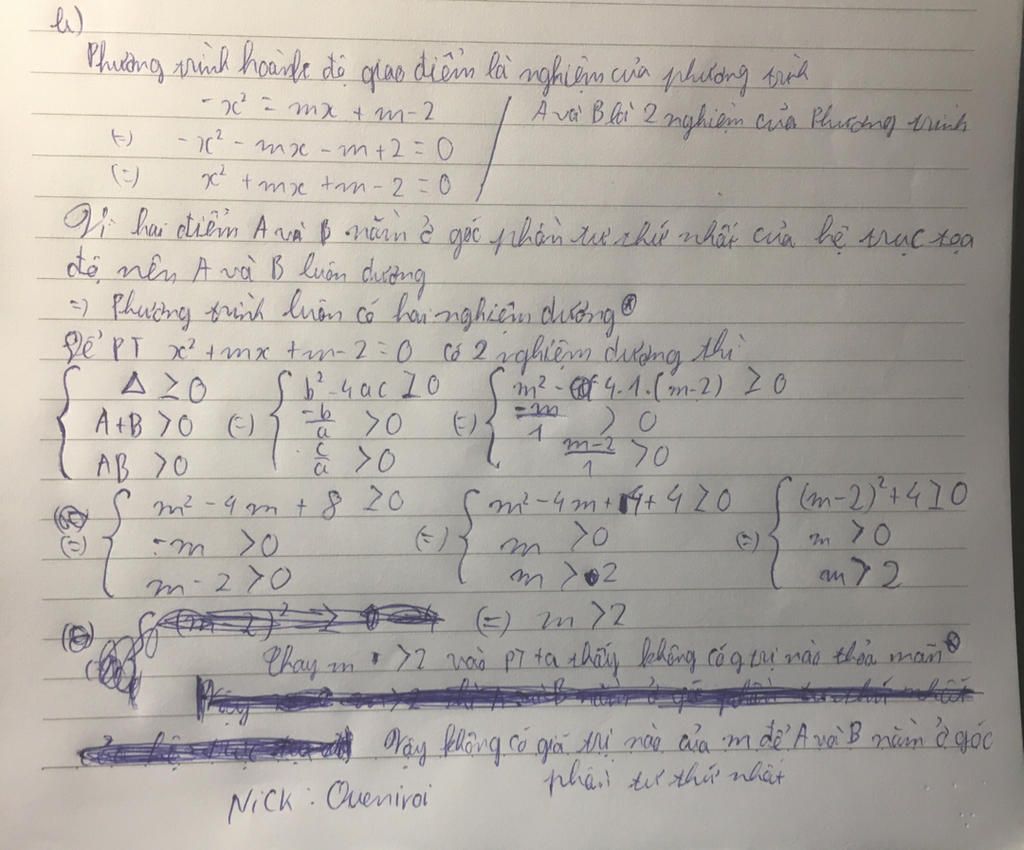 b)
Phương trình hoành độ giao điểm là nghiệm của phương trình
-x² = mx + m-2 / A và B là 2 nghiệm của Phương trình
(=) -x² - mx - m + 2 = 0
(=) x² + mx + m - 2 = 0
Vì hai điểm A và B nằm ở góc phần tư thứ nhất của hệ trục tọa
độ nên A và B luôn dương
=) Phương trình luôn có hai nghiệm dương
Để PT x² + mx + m - 2 = 0 có 2 nghiệm dương thì
{ Δ ≥ 0 { b² - 4ac ≥ 0 { m² - 4.1.(m-2) ≥ 0
A+B > 0 (=) -b/a > 0 (=) -m/1 > 0
AB > 0 c/a > 0 m-2/1 > 0
{ m² - 4m + 8 ≥ 0 { m² - 4m + 4 + 4 ≥ 0 { (m-2)² + 4 ≥ 0
(=) -m > 0 (=) m > 0 (=) m > 0
m - 2 > 0 m > 2 m > 2
(=) m > 2
Thay m > 2 vào PT ta thấy không có g trị nào thỏa mãn
Vậy không có giá trị nào của m để A và B nằm ở góc
phần tư thứ nhất
Nick: Queniroi